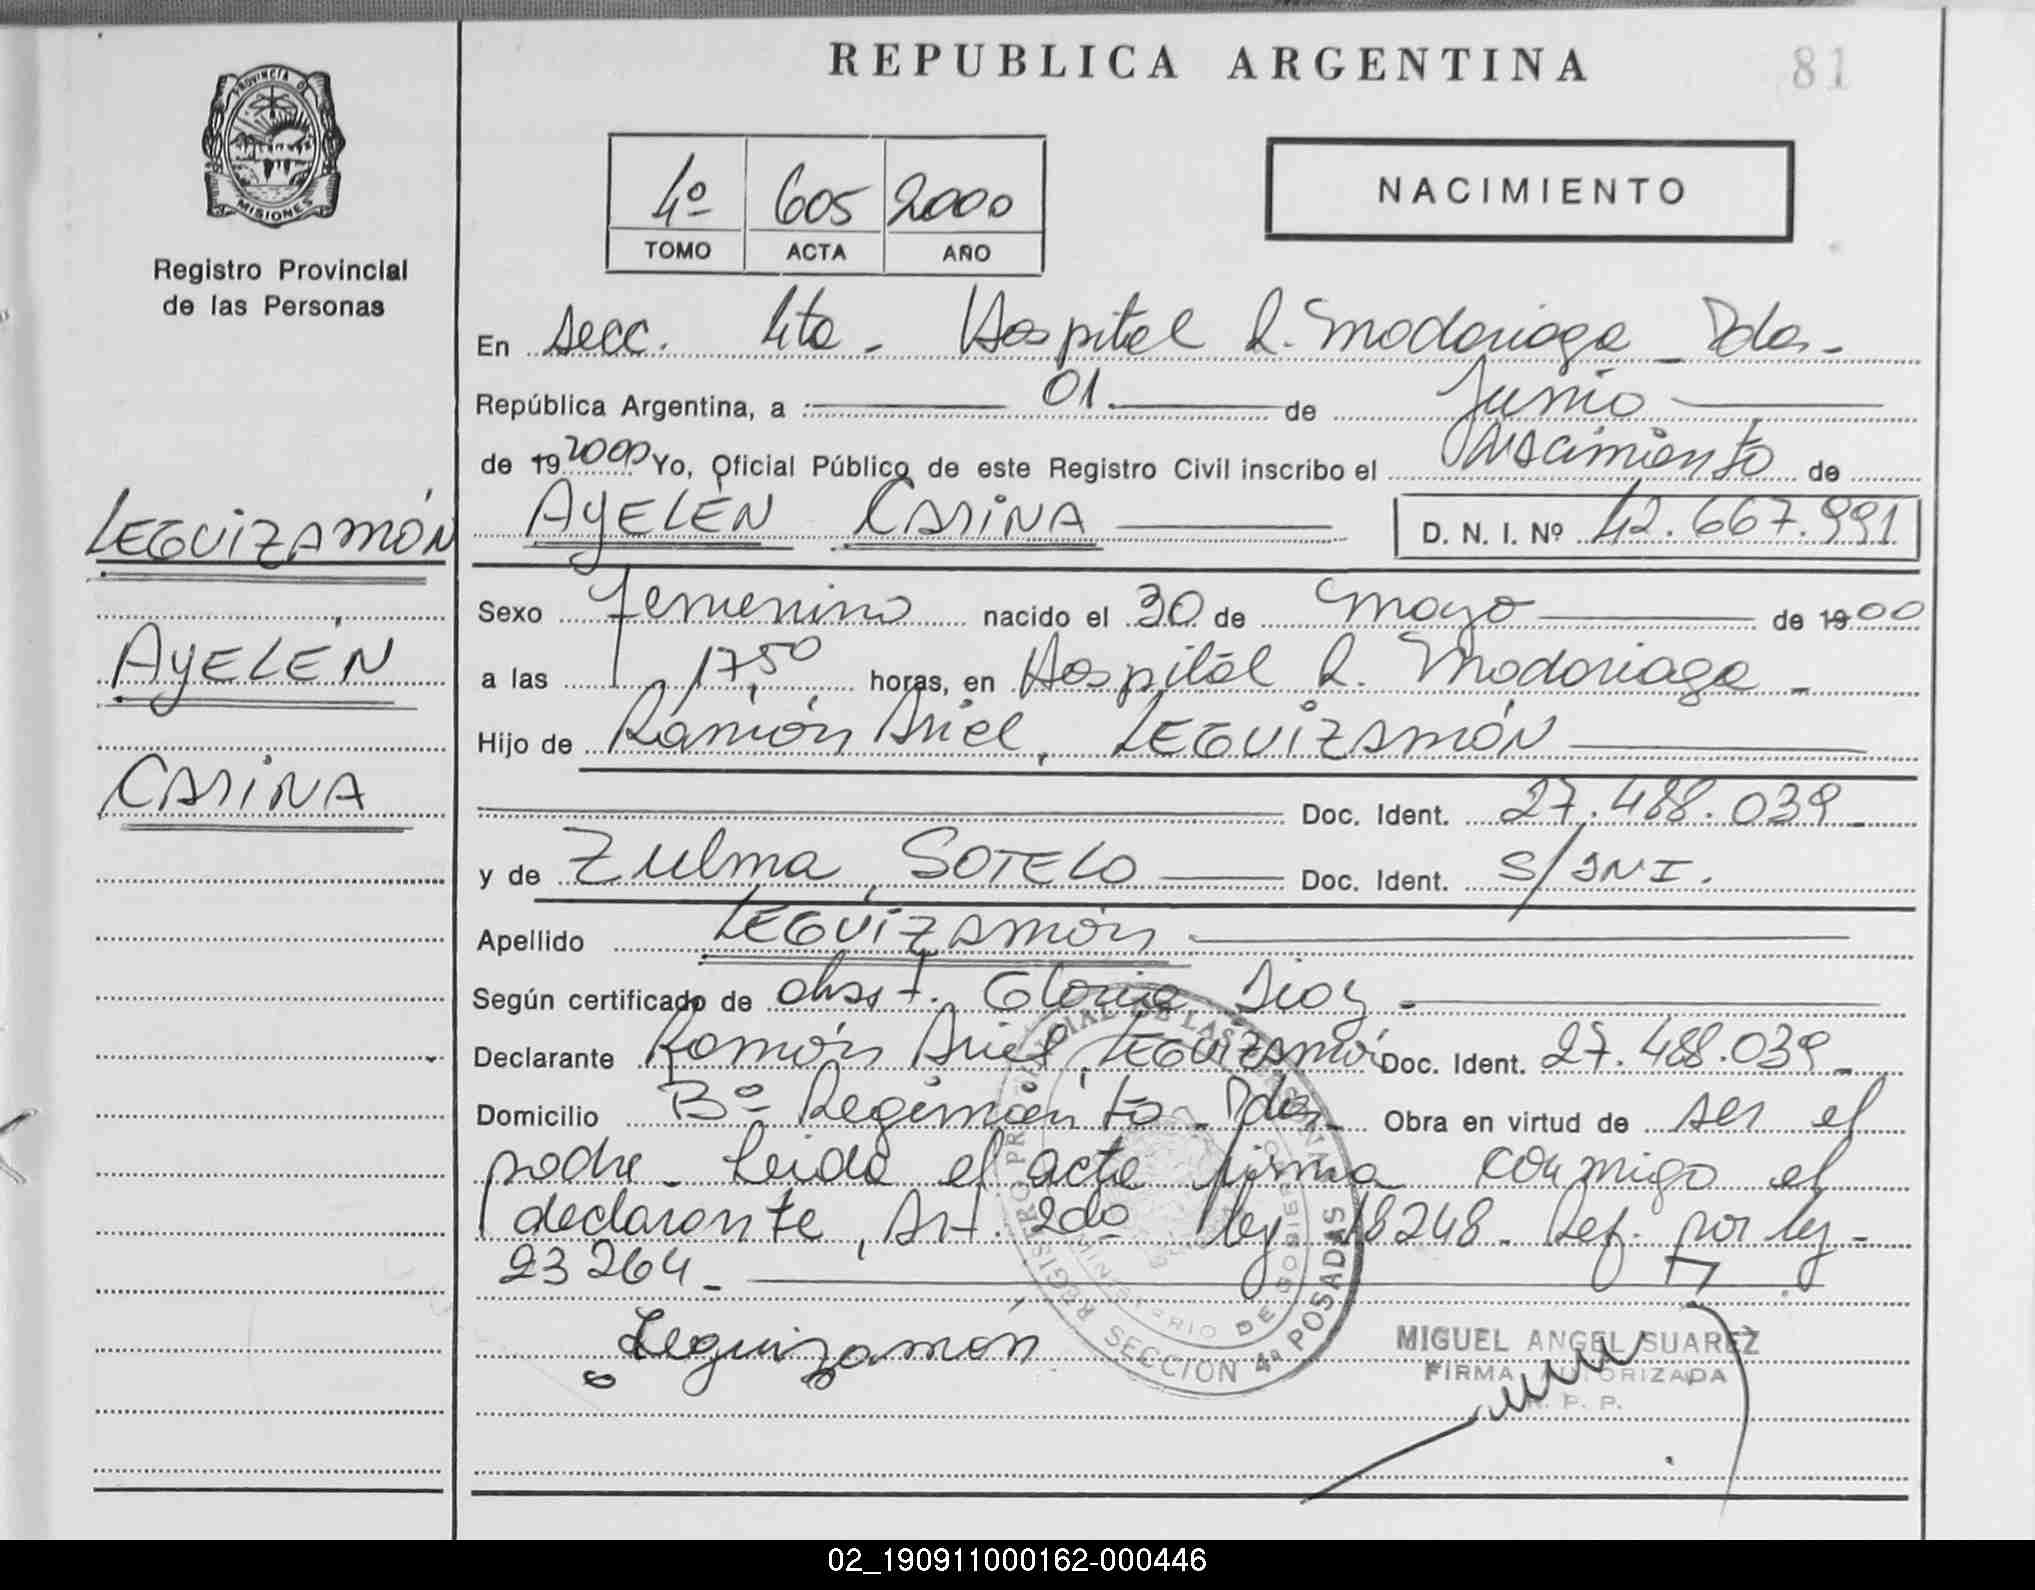 REPUBLICA ARGENTINA
81
PROVINCIA DE
MISIONES
Registro Provincial
de las Personas
4º 605 2000
TOMO ACTA AÑO
NACIMIENTO
En Secc. 4ta - Hospital R. Madariaga - Pdas -
República Argentina, a 01 de Junio
de 19 2000 Yo, Oficial Público de este Registro Civil inscribo el Nacimiento de
AYELÉN CARINA D. N. I. Nº 42.667.991
LEGUIZAMÓN
AYELÉN
CARINA
Sexo Femenino nacido el 30 de Mayo de 1900
a las 17,50 horas, en Hospital R. Madariaga -
Hijo de Ramón Ariel, LEGUIZAMÓN
Doc. Ident. 27.488.039 -
y de Zulma, SOTELO Doc. Ident. S/DNI.
Apellido LEGUIZAMÓN
Según certificado de obst. Gloria Díaz -
Declarante Ramón Ariel, LEGUIZAMÓN Doc. Ident. 27.488.039 -
Domicilio Bº Regimiento - Pdas - Obra en virtud de ser el
padre - Leída el acta firma conmigo el
declarante, Art. 2do ley 18248 - Ref. por ley -
23264 -
Leguizamón
REGISTRO PROVINCIAL DE LAS PERSONAS
MINISTERIO DE GOBIERNO
SECCION 4ª POSADAS
MIGUEL ANGEL SUAREZ
FIRMA AUTORIZADA
R. P. P.
02_190911000162-000446